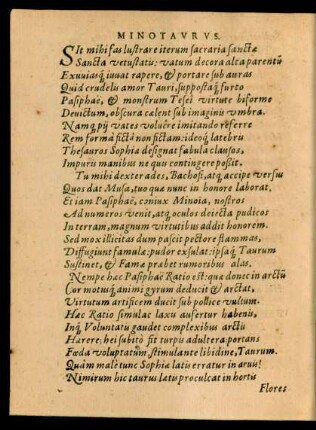 MINOTAVRVS.
SIt mihi fas lustrare iterum sacraria sanctæ
Sancta vetustatis: vatum decora alta parentū
Exuuiasq́; iuuat rapere, & portare sub auras
Quid crudelis amor Tauri, suppostaq́; furto
Pasiphaë, & monstrum Tesei virtute biforme
Deuictum, obscura cælent sub imaginis vmbra.
Namq; pij vates voluêre imitando referre
Rem forma fictā non fictam: ideoq́; latebris
Thesauros Sophiæ designat fabula clausos,
Impuris manibus ne quis contingere possit.
Tu mihi dexter ades, Bachofi, atq; accipe versus
Quos dat Musa, tuo quæ nunc in honore laborat.
Et iam Pasiphaë, coniux Minoia, nostros
Ad numeros venit, atq; oculos deiecta pudicos
In terram, magnum virtutibus addit honorem.
Sed mox illicitas dum pascit pectore flammas,
Diffugiunt famula: pudor exsulat: ipsaq́; Taurum
Sustinet, & Famæ præbet rumoribus alas.
Nempe hæc Pasiphaë Ratio est: quæ donec in arctū
Cor motusq́; animi gyrum deducit & arctat,
Virtutum artificem ducit sub pollice vultum.
Hæc Ratio simulac laxu aufertur habenis,
Inq́; Voluntatis gaudet complexibus arctis
Hærere: hei subitò fit turpis adultera: portans
Fœda voluptatum, stimulante libidine, Taurum.
Quàm malè tunc Sophiæ latis erratur in aruis!
Nimirum hic taurus latis proculcat in hortis
Flores